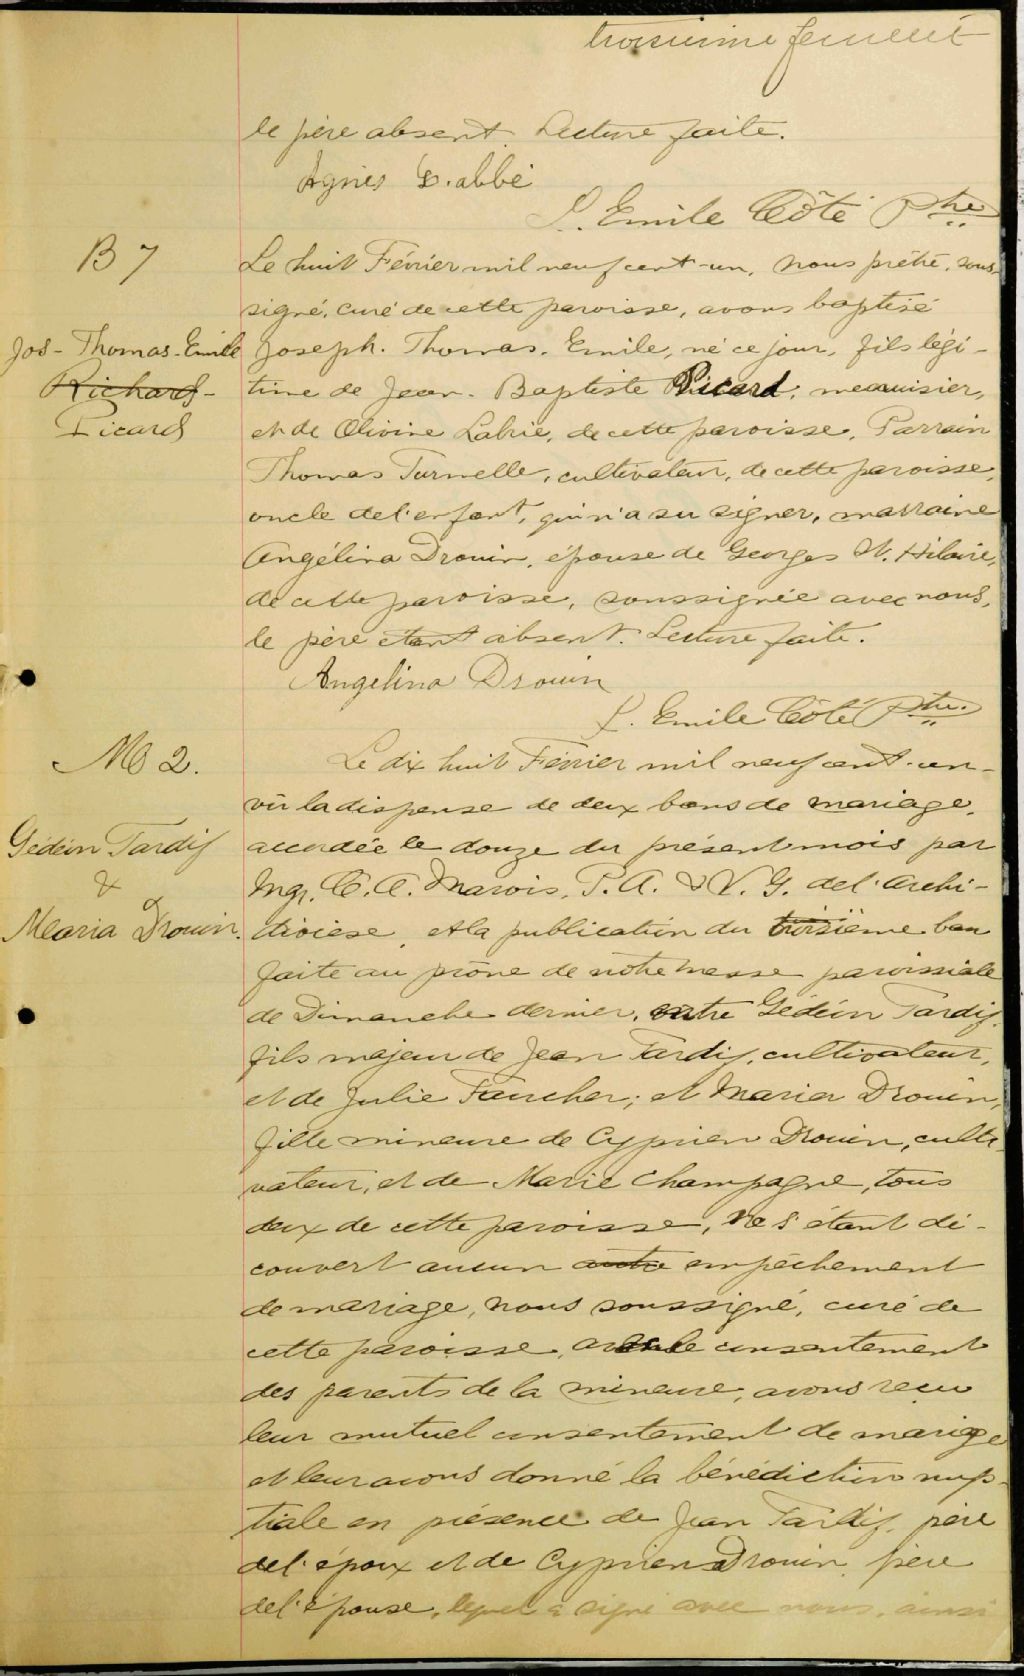 troisième feuillet
le père absent. Lecture faite.
Agnès Labbé
L. Emile Côté Ptre
B 7
Jos - Thomas - Emile
Richard -
Picard
Le huit Février mil neuf cent-un, nous prêtre, sous-
signé, curé de cette paroisse, avons baptisé
Joseph. Thomas. Emile, né ce jour, fils légi-
time de Jean. Baptiste Picard, menuisier,
et de Olivine Labrie, de cette paroisse. Parrain
Thomas Turmelle, cultivateur, de cette paroisse,
oncle de l'enfant, qui n'a su signer, marraine
Angélina Drouin, épouse de Georges St. Hilaire,
de cette paroisse, soussignée avec nous,
le père étant absent. Lecture faite.
Angelina Drouin
L. Emile Côté Ptre.
M 2.
Gédéon Tardif
&
Maria Drouin.
Le dix huit Février mil neuf cent-un-
vû la dispense de deux bans de mariage,
accordée le douze du présent mois par
Mgr. C. A. Marois, P. A. & V. G. de l'Archi-
diocèse, et la publication du troisième ban
faite au prône de nôtre messe paroissiale
de Dimanche dernier, entre Gédéon Tardif,
fils majeur de Jean Tardif, cultivateur,
et de Julie Faucher; et Maria Drouin,
fille mineure de Cyprien Drouin, culti-
vateur, et de Marie Champagne, tous
deux de cette paroisse, ne s'étant dé-
couvert aucun autre empêchement
de mariage, nous soussigné, curé de
cette paroisse, avec le consentement
des parents de la mineure, avons reçu
leur mutuel consentement de mariage
et leur avons donné la bénédiction nup-
tiale en présence de Jean Tardif, père
de l'époux et de Cyprien Drouin, père
de l'épouse, lequel a signé avec nous, ainsi